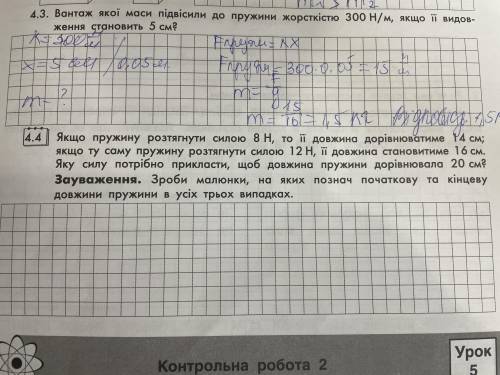 4.3. Вантаж якої маси підвісили до пружини жорсткістю 300 Н/м, якщо її видов-
ження становить 5 см?
K=300 Н/м
Fпружн=KX
x=5 см / 0,05 м.
Fпружн=300·0.05=15 Н
m=F/g
m=?
m=15/10=1,5 кг
4.4 Якщо пружину розтягнути силою 8 Н, то її довжина дорівнюватиме 14 см;
якщо ту саму пружину розтягнути силою 12 Н, її довжина становитиме 16 см.
Яку силу потрібно прикласти, щоб довжина пружини дорівнювала 20 см?
Зауваження. Зроби малюнки, на яких познач початкову та кінцеву
довжини пружини в усіх трьох випадках.
Контрольна робота 2
Урок
5